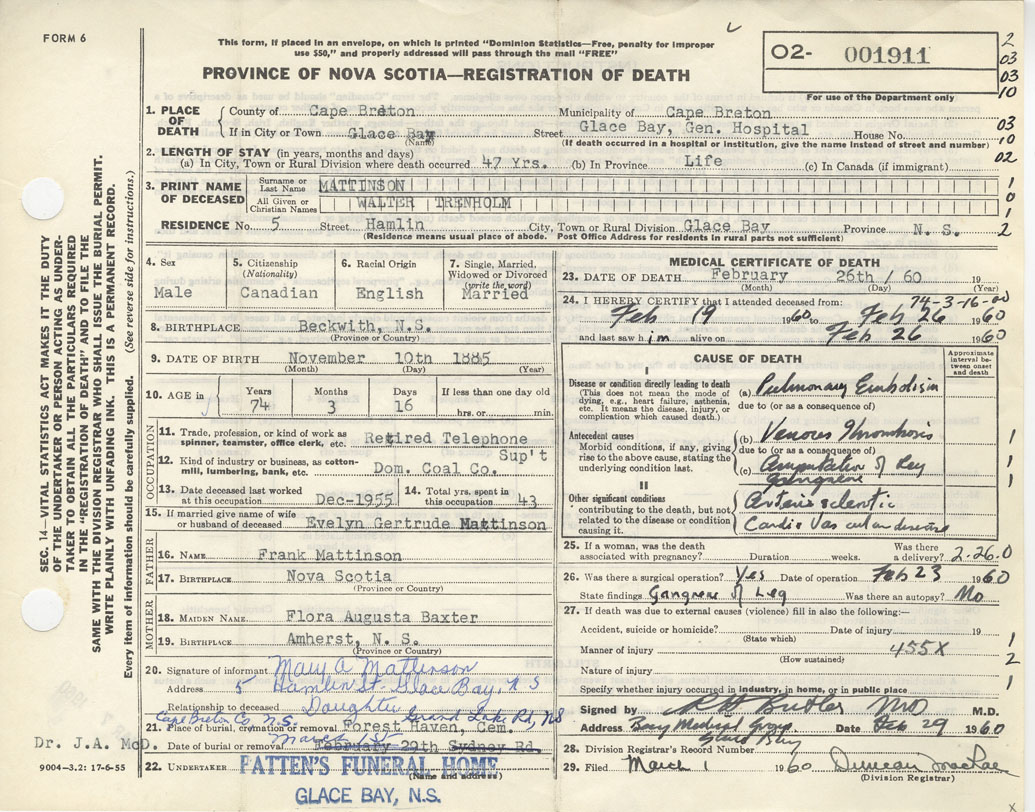 FORM 6
This form, if placed in an envelope, on which is printed "Dominion Statistics—Free, penalty for improper
use $50," and properly addressed will pass through the mail "FREE"
PROVINCE OF NOVA SCOTIA—REGISTRATION OF DEATH
02- 001911
For use of the Department only
2
03
03
10
03
10
02
1
0
1
2
SEC. 14—VITAL STATISTICS ACT MAKES IT THE DUTY
OF THE UNDERTAKER OR PERSON ACTING AS UNDER-
TAKER TO OBTAIN ALL THE PARTICULARS REQUIRED
IN THE "REGISTRATION OF DEATH" AND TO FILE THE
SAME WITH THE DIVISION REGISTRAR WHO SHALL ISSUE THE BURIAL PERMIT.
WRITE PLAINLY WITH UNFADING INK. THIS IS A PERMANENT RECORD.
Every item of information should be carefully supplied. (See reverse side for instructions.)
1. PLACE OF DEATH
County of Cape Breton Municipality of Cape Breton
If in City or Town Glace Bay Street Glace Bay, Gen. Hospital House No.
(Name) (If death occurred in a hospital or institution, give the name instead of street and number)
2. LENGTH OF STAY (in years, months and days)
(a) In City, Town or Rural Division where death occurred 47 Yrs. (b) In Province Life (c) In Canada (if immigrant)
3. PRINT NAME OF DECEASED
Surname or Last Name MATTINSON
All Given or Christian Names WALTER TRENHOLM
RESIDENCE No. 5 Street Hamlin City, Town or Rural Division Glace Bay Province N. S.
(Residence means usual place of abode. Post Office Address for residents in rural parts not sufficient)
4. Sex
Male
5. Citizenship
(Nationality)
Canadian
6. Racial Origin
English
7. Single, Married,
Widowed or Divorced
(write the word)
Married
8. BIRTHPLACE Beckwith, N.S.
(Province or Country)
9. DATE OF BIRTH November 10th 1885
(Month) (Day) (Year)
10. AGE in
Years 74
Months 3
Days 16
If less than one day old
hrs. or min.
OCCUPATION
11. Trade, profession, or kind of work as
spinner, teamster, office clerk, etc. Retired Telephone
Sup't
12. Kind of industry or business, as cotton-
mill, lumbering, bank, etc. Dom. Coal Co.
13. Date deceased last worked
at this occupation Dec-1955
14. Total yrs. spent in
this occupation 43
15. If married give name of wife
or husband of deceased Evelyn Gertrude Mattinson
FATHER
16. NAME Frank Mattinson
17. BIRTHPLACE Nova Scotia
(Province or Country)
MOTHER
18. MAIDEN NAME Flora Augusta Baxter
19. BIRTHPLACE Amherst, N. S.
(Province or Country)
20. Signature of informant Mary A Mattinson
Address 5 Hamlin St-Glace Bay, N S
Relationship to deceased Daughter
Cape Breton Co, N.S. Grand Lake Rd, NS
21. Place of burial, cremation or removal Forest Haven, Cem.
March 1st
Date of burial or removal February 29th Sydney Rd.
Dr. J.A. McD.
22. UNDERTAKER PATTEN'S FUNERAL HOME
(Name and address)
GLACE BAY, N.S.
9004-3.2: 17-6-55
MEDICAL CERTIFICATE OF DEATH
23. DATE OF DEATH February 26th / 60 19
(Month) (Day) (Year)
74-3-16-00
24. I HEREBY CERTIFY that I attended deceased from:
Feb 19 1960 to Feb 26 1960
and last saw him alive on Feb 26 1960
CAUSE OF DEATH
Approximate
interval be-
tween onset
and death
I
Disease or condition directly leading to death
(This does not mean the mode of
dying, e.g., heart failure, asthenia,
etc. It means the disease, injury, or
complication which caused death.)
(a) Pulmonary Embolism
due to (or as a consequence of)
Antecedent causes
Morbid conditions, if any, giving
rise to the above cause, stating the
underlying condition last.
(b) Venous Thrombosis
due to (or as a consequence of)
(c) Amputation of Leg
Gangrene
II
Other significant conditions
contributing to the death, but not
related to the disease or condition
causing it.
Arteriosclerotic
Cardio Vascular disease
1
1
1
25. If a woman, was the death
associated with pregnancy? Duration weeks. Was there
a delivery? 2-26-0
26. Was there a surgical operation? Yes Date of operation Feb 23 1960
State findings Gangrene of Leg Was there an autopsy? No
27. If death was due to external causes (violence) fill in also the following:—
Accident, suicide or homicide? Date of injury 19
(State which)
Manner of injury 455X
(How sustained)
Nature of injury
Specify whether injury occurred in industry, in home, or in public place
1
2
1
Signed by R H Butler MD M.D.
Address Bay Medical Group Date Feb 29 1960
Glace Bay
28. Division Registrar's Record Number
29. Filed March 1 1960 Duncan MacRae
(Division Registrar)
x